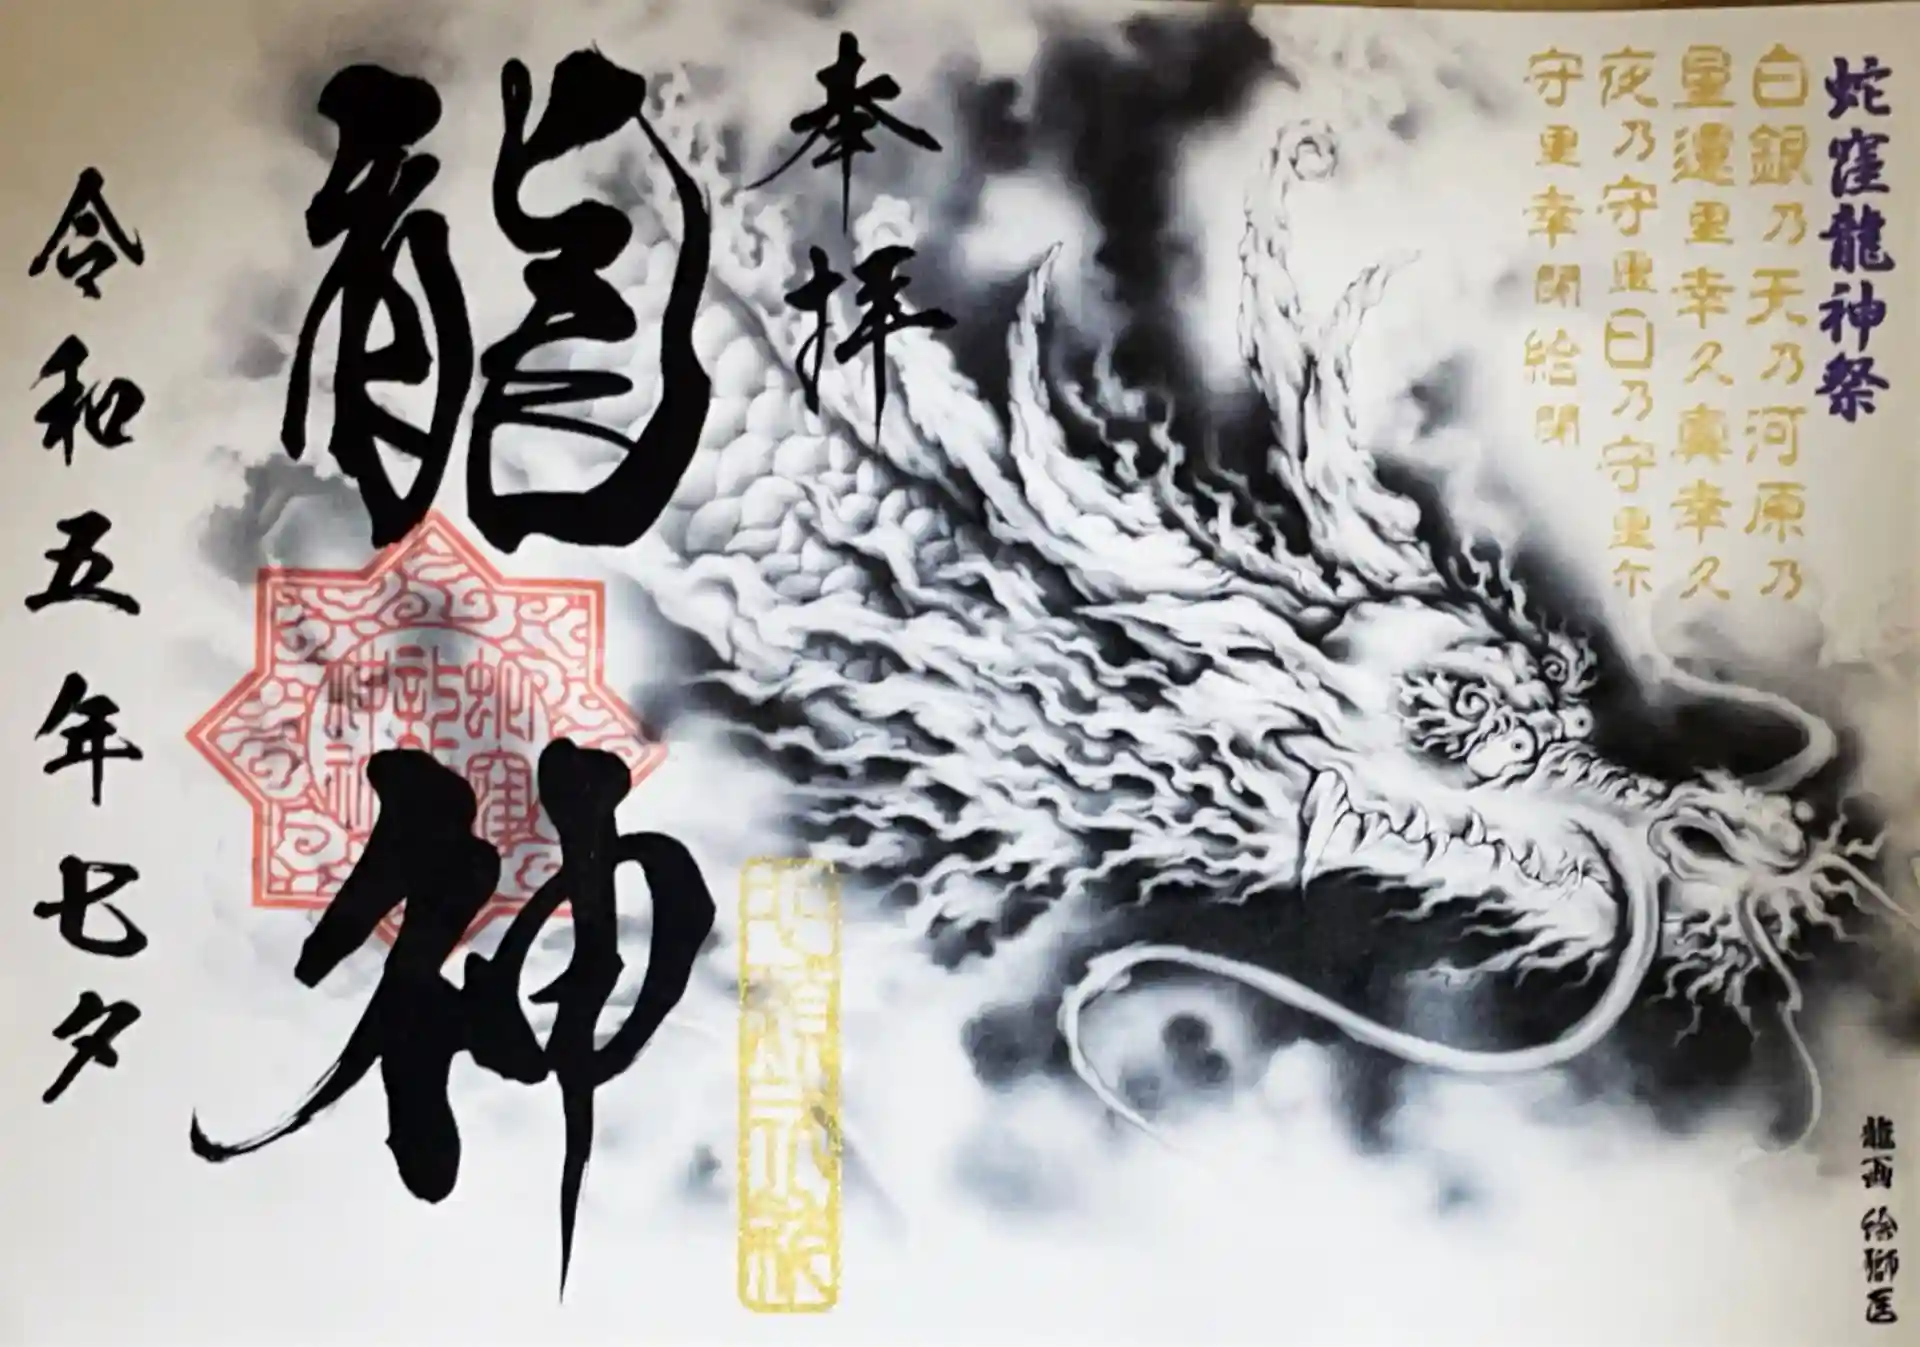 蛇窪龍神祭
白銀乃天乃河原乃
星還里幸久真幸久
夜乃守里日乃守里尓
守里幸閇給閇
奉拝
龍神
蛇窪龍神
令和五年七夕
龍画 絵獅匠